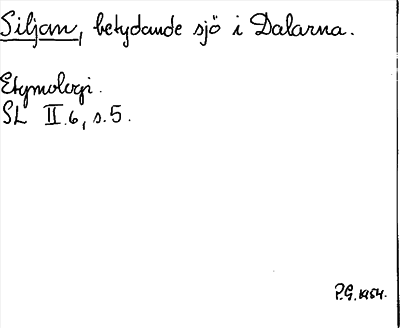 Siljan, betydande sjö i Dalarna.
Etymologi.
SL II.6, s.5.
P.G. 1954.